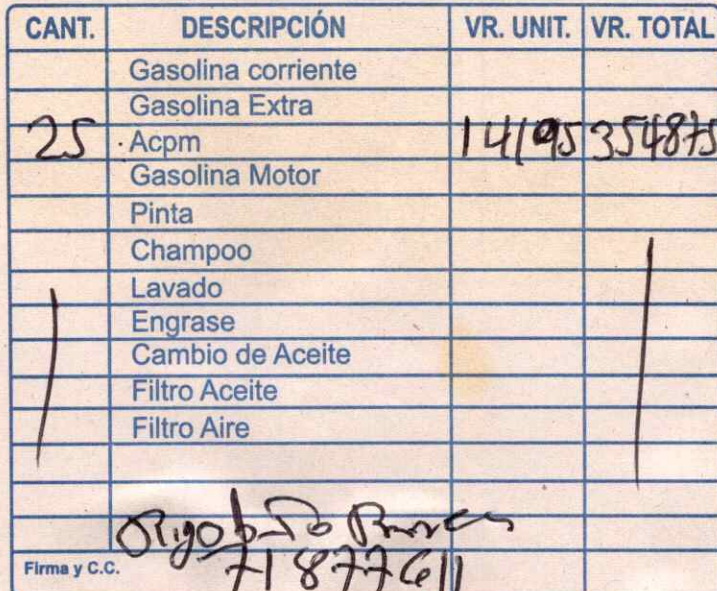 CANT. DESCRIPCIÓN VR. UNIT. VR. TOTAL
Gasolina corriente
Gasolina Extra
25 Acpm 14195 354875
Gasolina Motor
Pinta
Champoo
Lavado
Engrase
Cambio de Aceite
Filtro Aceite
Filtro Aire
Rigoberto
Firma y C.C. 71877611